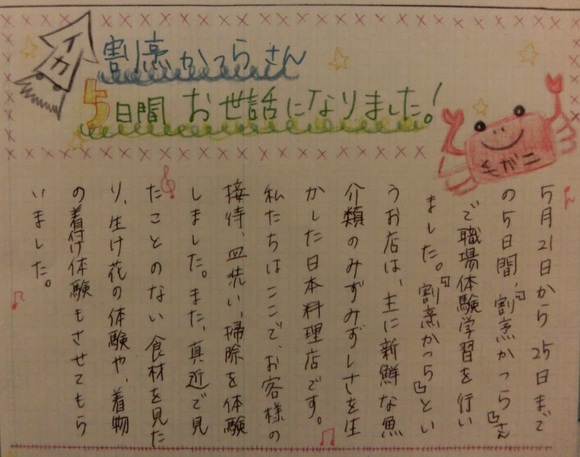 イカ
割烹かつらさん
5日間 お世話になりました!
毛ガニ
5月21日から25日まで
の5日間、「割烹かつら」さん
で職場体験学習を行い
ました。「割烹かつら」とい
うお店は、主に新鮮な魚
介類のみずみずしさを生
かした日本料理店です。
私たちはここで、お客様の
接待、皿洗い、掃除を体験
しました。また、真近で見
たことのない食材を見た
り、生け花の体験や、着物
の着付け体験もさせてもら
いました。